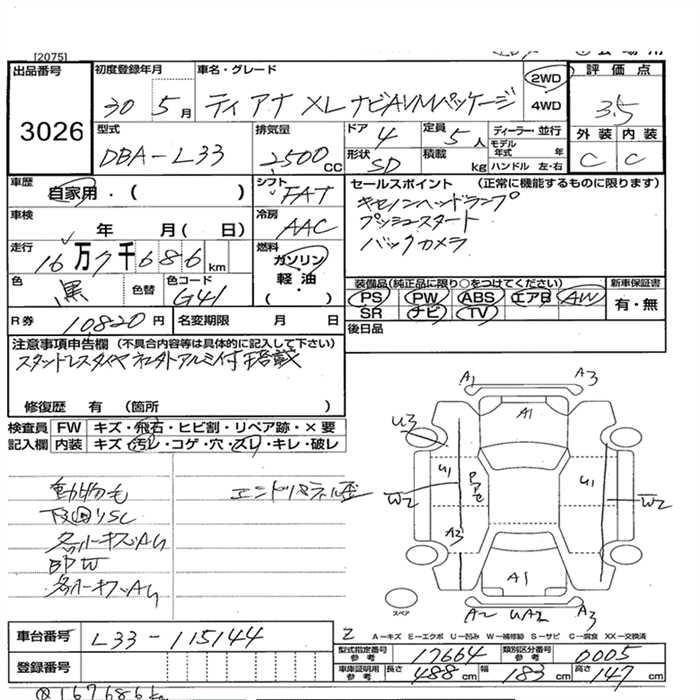 [2075]
出品番号
3026
初度登録年月
30 5月
車名・グレード
ティアナ XL ナビAVMパッケージ
2WD
4WD
評価点
3.5
外装 内装
C C
型式
DBA-L33
排気量
2500cc
ドア 4
定員 5人
形状 SD
積載 kg
ディーラー・並行
モデル年式 年
ハンドル 左・右
車歴
自家用・( )
シフト
FAT
車検
年 月( 日)
冷房
AAC
走行
16万7千686km
燃料
ガソリン
軽・油
( )
色
黒
色替
色コード
G41
R券 10820円
名変期限 月 日
セールスポイント (正常に機能するものに限ります)
キセノンヘッドランプ
プッシュスタート
バックカメラ
装備品(純正品に限り○をつけてください)
PS PW ABS エアB AW
SR ナビ TV
新車保証書
有・無
後日品
注意事項申告欄 (不具合内容等は具体的に記入して下さい)
スタッドレスタイヤ ネクストアルミ付 搭載
修復歴 有 (箇所 )
検査員 FW キズ・飛石・ヒビ割・リペア跡・×要
記入欄 内装 キズ・汚レ・コゲ・穴・スレ・キレ・破レ
エンドパネル歪
A1 A3
A1
U3
U1
U1
W2
W2
A3
A1
A2 UA2 A3
スペア
2 A-キズ E-エクボ U-凹み W-補修跡 S-サビ C-腐食 XX-交換済
車台番号
L33-115144
登録番号
型式指定番号 参考 17664
類別区分番号 参考 0005
車庫証明用 参考 長さ 488cm 幅 183cm 高さ 147cm
167686km